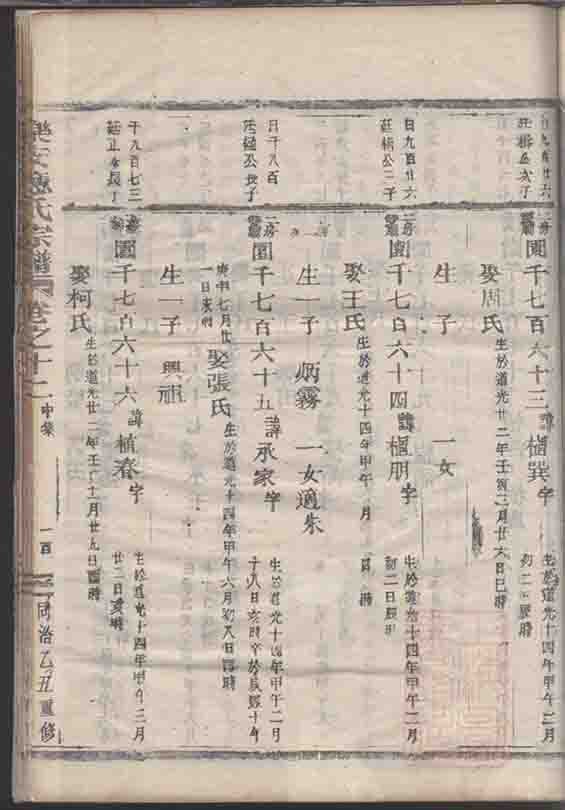 圍千七百六十三 諱楿巽字
生於道光十四年甲午二月
初二日辰時
娶周氏 生於道光廿二年壬寅二月廿六日巳時
生一子 一女
日九百廿六
廷楫公三子
圍千七百六十四 諱楒朋字
生於道光十四年甲午二月
初二日辰時
娶王氏 生於道光十四年甲午 月 日 時
生一子 炳霧 一女適朱
日千八百
廷 公長子
圍千七百六十五 諱承家字
生於道光十四年甲午二月
十八日亥時卒於咸豐十年
庚申七月廿
一日亥時
娶張氏 生於道光十四年甲午六月初八日 時
生一子 興祖
千八百七十三
廷 公長子
圍千七百六十六 諱植春字
生於道光十四年甲午三月
廿二日亥時
娶柯氏 生於道光廿二年壬 十二月廿九日 時
氏宗譜 卷之十二 中集 一百 同治乙丑重修